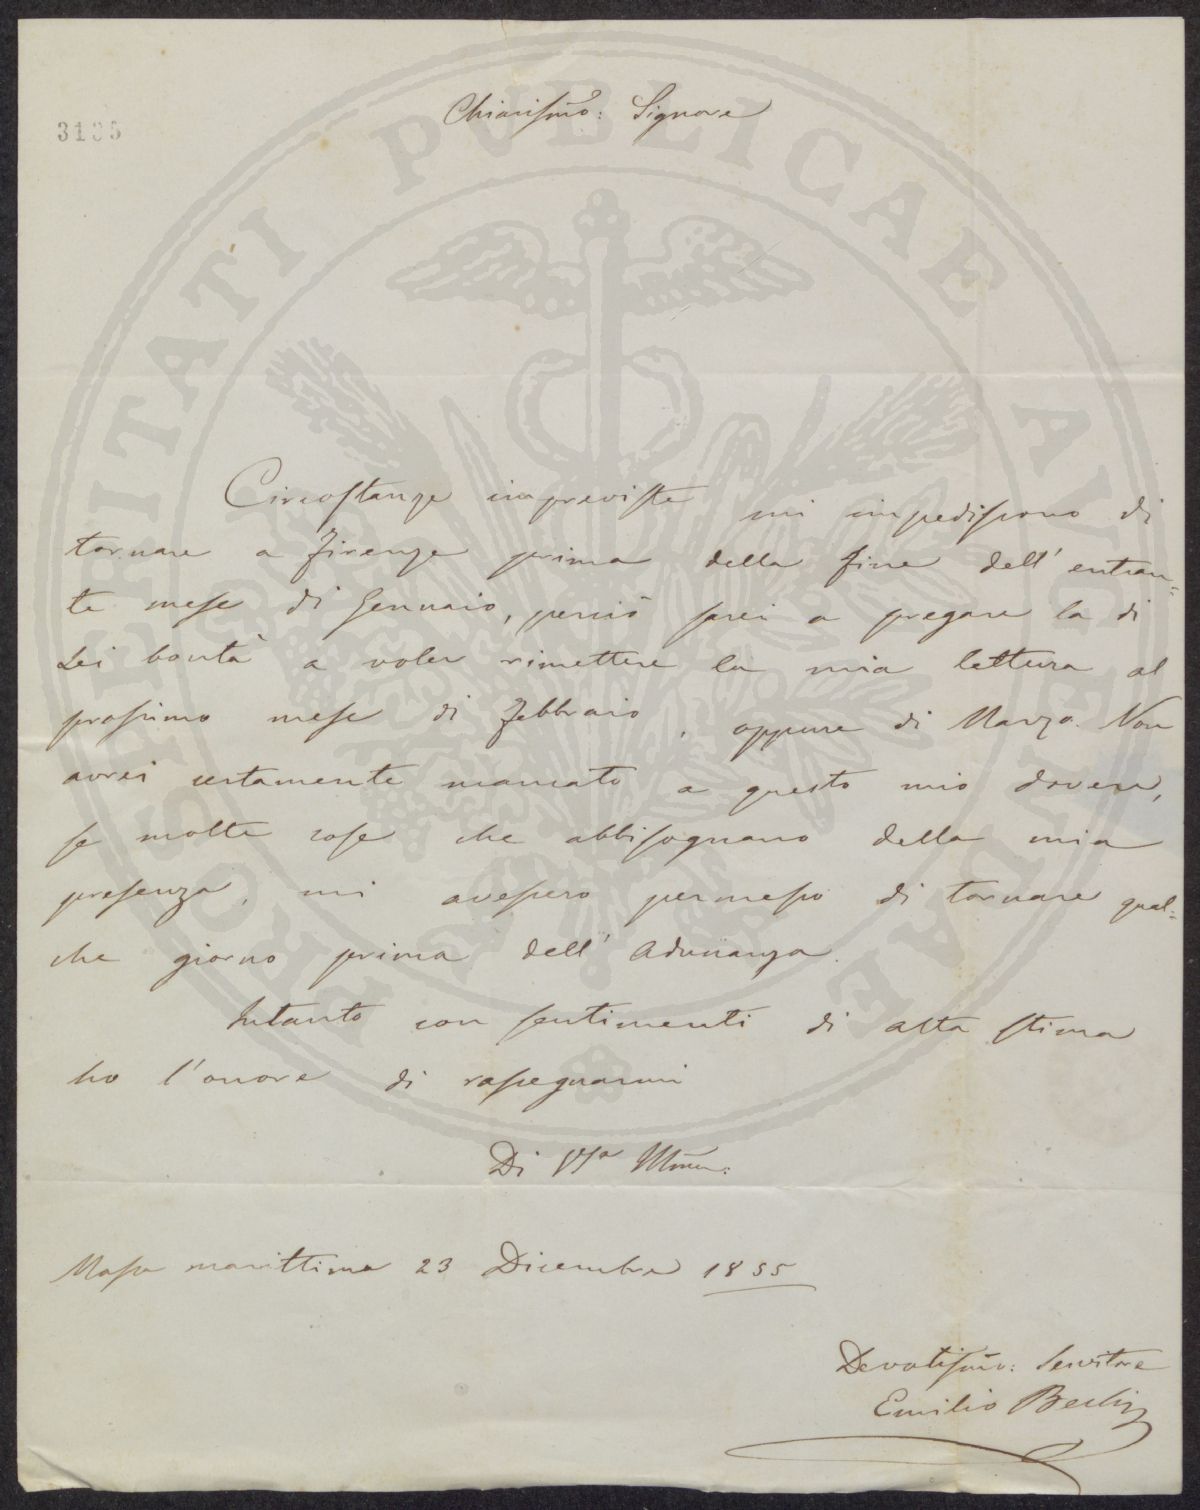 3135
Chiarissmo: Signore
Circostanze impreviste mi impediscono di
tornare a Firenze prima della fine dell' entran-
te mese di Gennaio, perciò sarei a pregare la di
Lei bontà a voler rimettere la mia lettura al
prossimo mese di Febbraio, oppure di Marzo. Non
avrei certamente mancato a questo mio dovere,
se molte cose che abbisognano della mia
presenza, mi avessero permesso di tornare qual-
che giorno prima dell' Adunanza.
Intanto con sentimenti di alta stima
ho l'onore di rassegnarmi
Di VSa
Massa marittima 23 Dicembre 1855
Devotissmo: Servitore
Emilio Bechi
PROSPERITATI PUBLICAE AUGENDAE